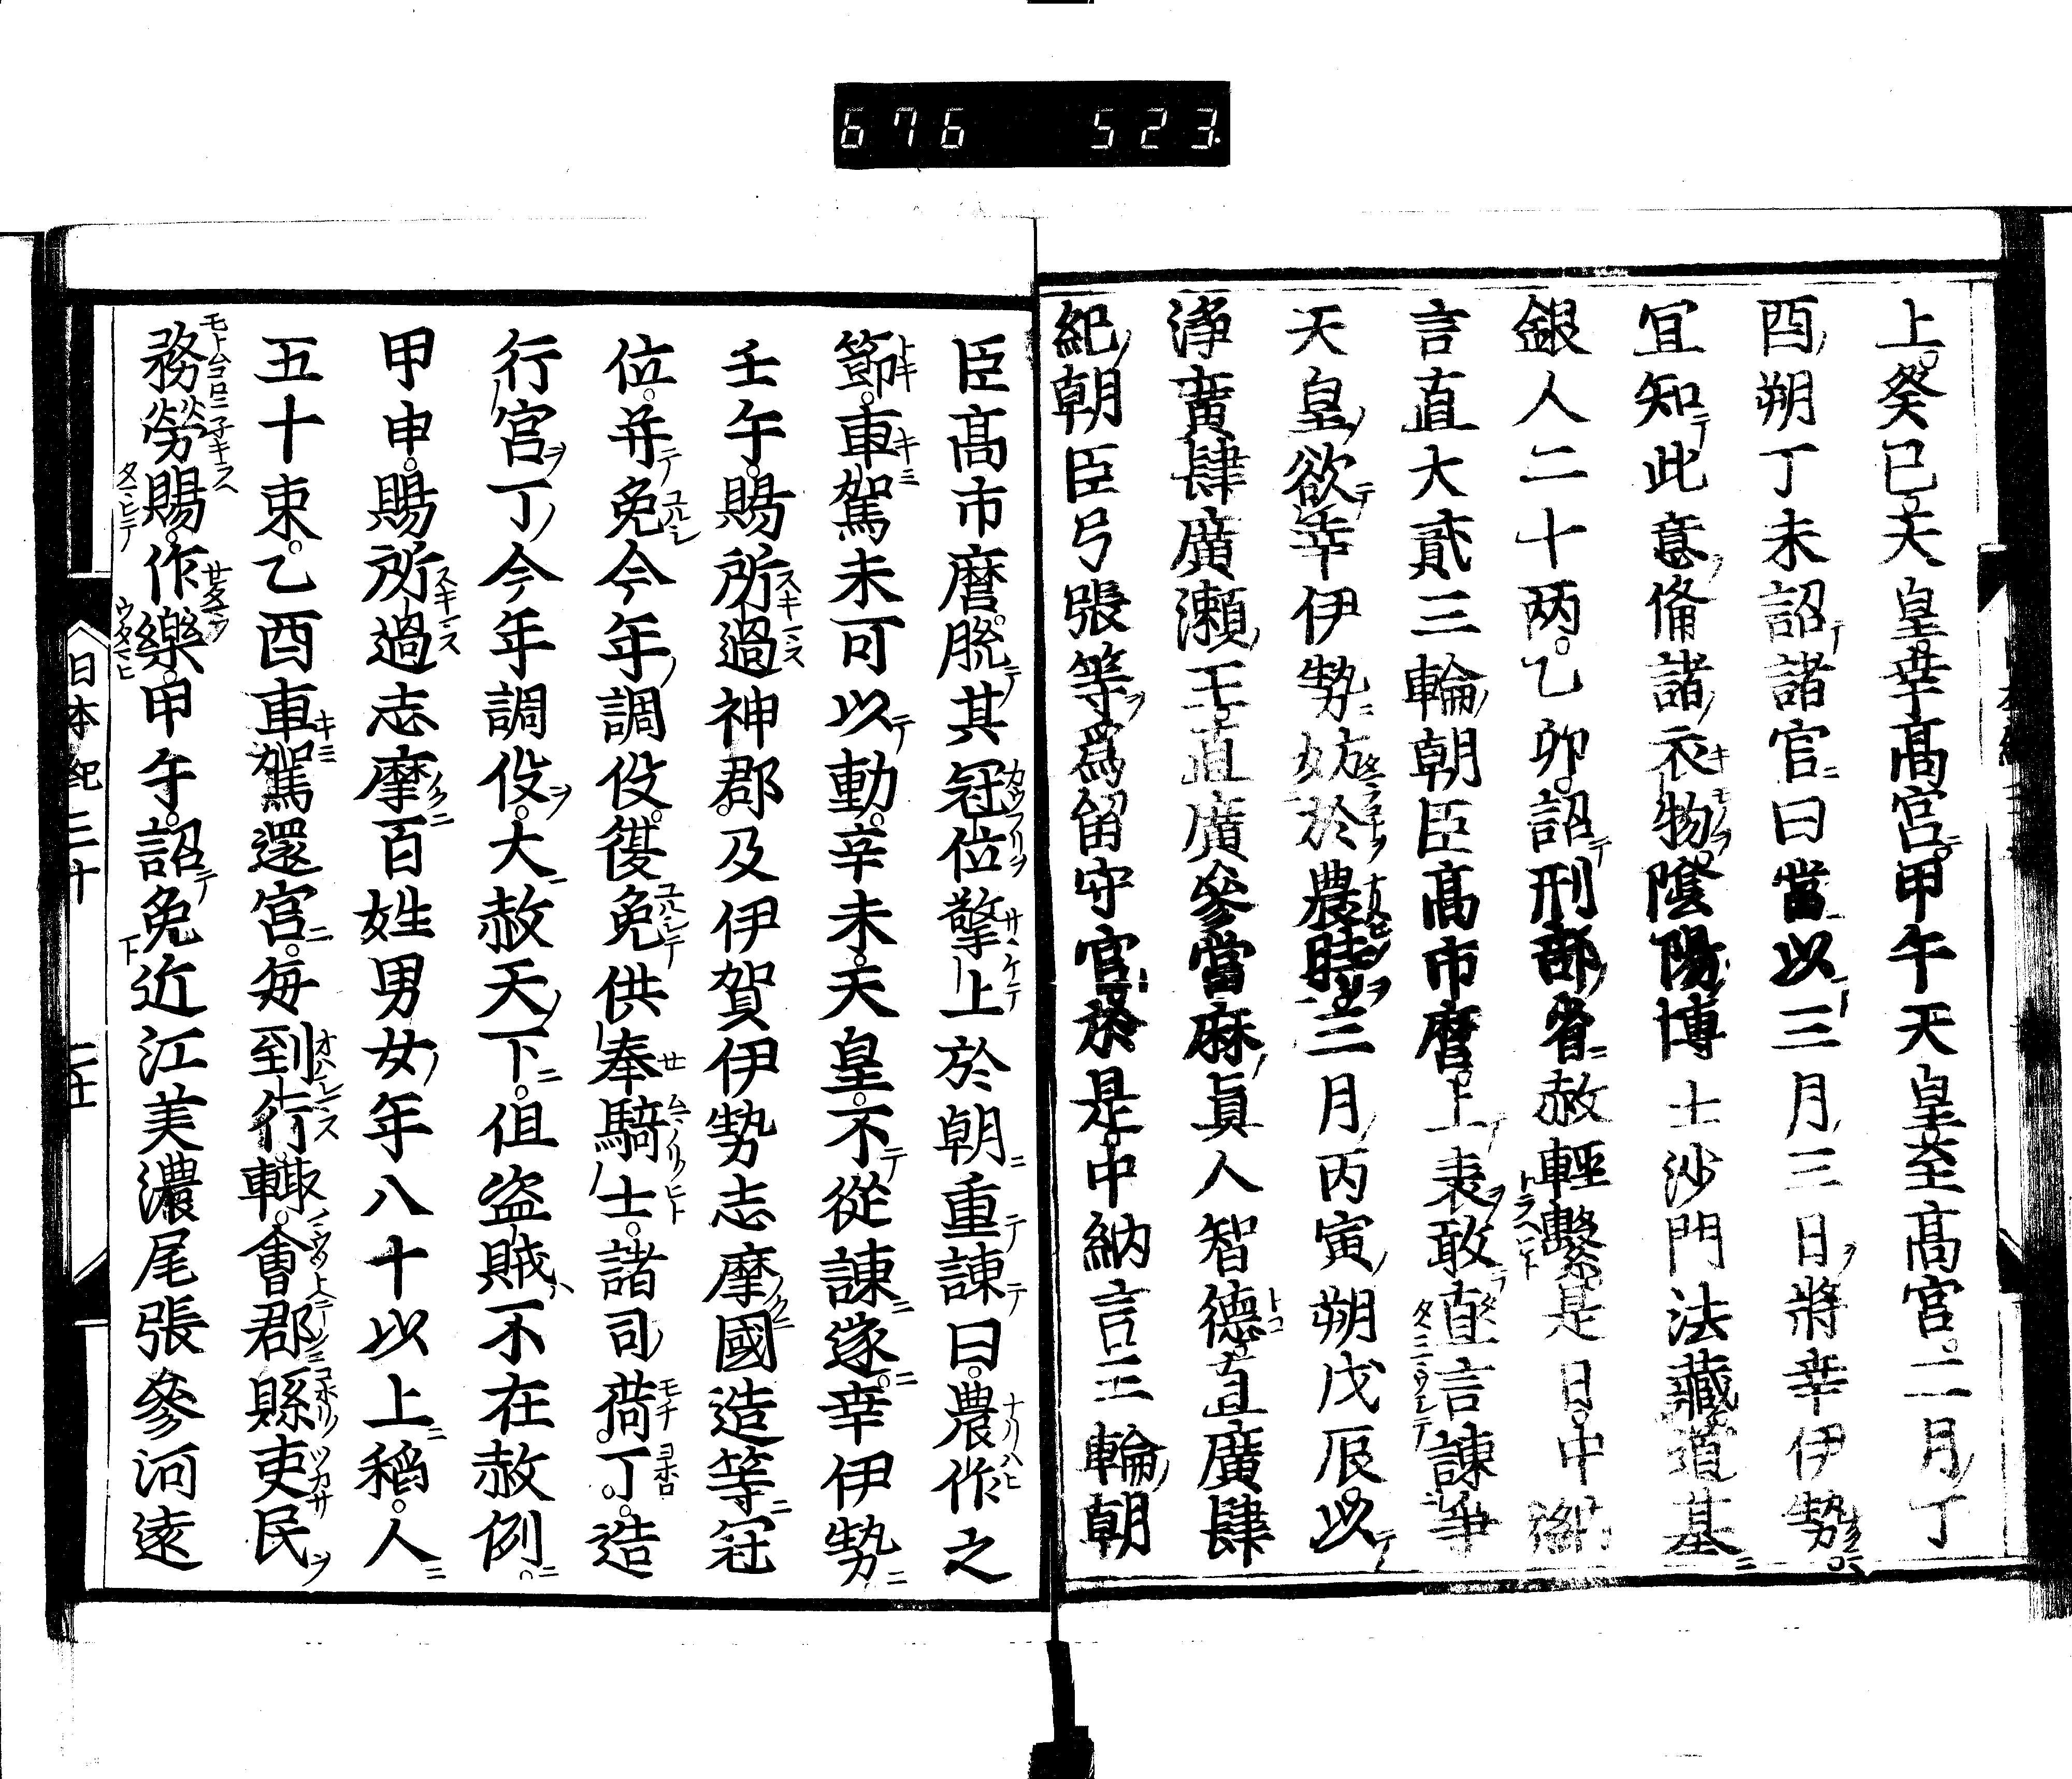 676 523
上癸巳天皇幸髙宮甲午天皇至髙宮二月丁
酉朔丁未詔諸官曰當以三月三日將幸伊勢
宜知此意俻諸衣物隂陽博士沙門法藏道基
銀人二十兩乙卯詔刑部省赦輕繫是日中納
言直大貳三輪朝臣髙市麿上表敢直言諫爭
天皇欲幸伊勢妨於農時三月丙寅朔戊辰以
淨廣肆廣瀬王直廣參當麻眞人智德直廣肆
紀朝臣弓張等爲留守官於是中納言三輪朝
臣髙市麿脱其冠位擎上於朝重諫曰農作之
節車駕未可以動辛未天皇不從諫遂幸伊勢
壬午賜所過神郡及伊賀伊勢志摩國造等冠
位并免今年調伇復免供奉騎士諸司荷丁造
行宮丁今年調伇大赦天下但盗賊不在赦例
甲申賜所過志摩百姓男女年八十以上稻人
五十束乙酉車駕還宮每到行輙會郡縣吏民
務勞賜作樂甲午詔免近江美濃尾張參河遠
日本紀三十